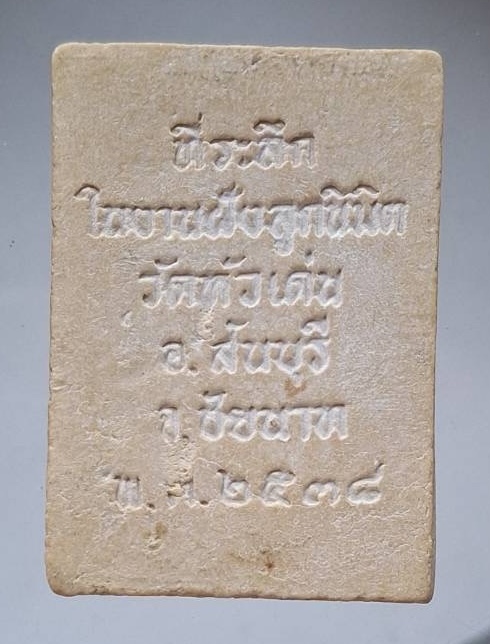 ที่ระลึก
ในงานฝังลูกนิมิต
วัดหัวเด่น
อ. สรรคบุรี
จ. ชัยนาท
พ.ศ. ๒๕๓๘